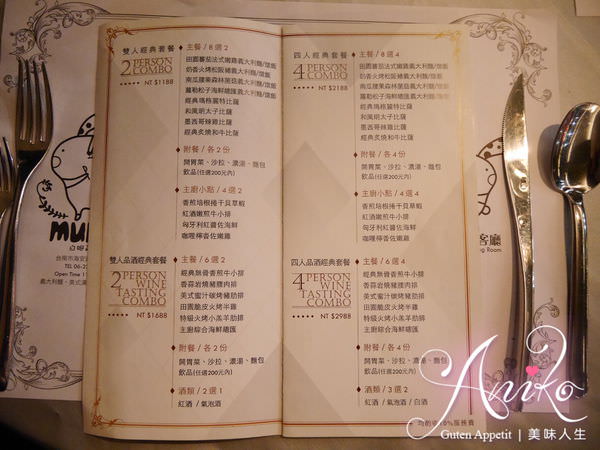 雙人經典套餐
2 PERSON COMBO
NT $1188
主餐 / 8選2
田園蕃茄法式嫩雞義大利麵/燉飯
奶香火烤松阪豬義大利麵/燉飯
南瓜腰果森林菌菇義大利麵/燉飯
蘿勒松子海鮮總匯義大利麵/燉飯
經典瑪格麗特比薩
和風明太子比薩
墨西哥辣雞比薩
經典炙燒和牛比薩
附餐 / 各2份
開胃菜、沙拉、濃湯、麵包
飲品(任選200元內)
主廚小點 / 4選2
香煎培根捲干貝草蝦
紅酒嫩煎牛小排
匈牙利紅醬佐海鮮
咖哩檸香佐嫩雞
雙人品酒經典套餐
2 PERSON WINE TASTING COMBO
NT $1688
主餐 / 6選2
經典無骨香煎牛小排
香蒜岩燒豬腰內排
美式蜜汁碳烤豬肋排
田園脆皮火烤半雞
特級火烤小羔羊肋排
主廚綜合海鮮總匯
附餐 / 各2份
開胃菜、沙拉、濃湯、麵包
飲品(任選200元內)
酒類 / 2選1
紅酒 / 氣泡酒
四人經典套餐
4 PERSON COMBO
NT $2188
主餐 / 8選4
田園蕃茄法式嫩雞義大利麵/燉飯
奶香火烤松阪豬義大利麵/燉飯
南瓜腰果森林菌菇義大利麵/燉飯
蘿勒松子海鮮總匯義大利麵/燉飯
經典瑪格麗特比薩
和風明太子比薩
墨西哥辣雞比薩
經典炙燒和牛比薩
附餐 / 各4份
開胃菜、沙拉、濃湯、麵包
飲品(任選200元內)
主廚小點 / 4選4
香煎培根捲干貝草蝦
紅酒嫩煎牛小排
匈牙利紅醬佐海鮮
咖哩檸香佐嫩雞
四人品酒經典套餐
4 PERSON WINE TASTING COMBO
NT $2988
主餐 / 6選4
經典無骨香煎牛小排
香蒜岩燒豬腰內排
美式蜜汁碳烤豬肋排
田園脆皮火烤半雞
特級火烤小羔羊肋排
主廚綜合海鮮總匯
附餐 / 各4份
開胃菜、沙拉、濃湯、麵包
飲品(任選200元內)
酒類 / 3選2
紅酒 / 氣泡酒 / 白酒
台南市海安
TEL 06-2
Open Time 11
義大利麵、美式漢
客廳
ng Room
Aniko
Guten Appetit | 美味人生